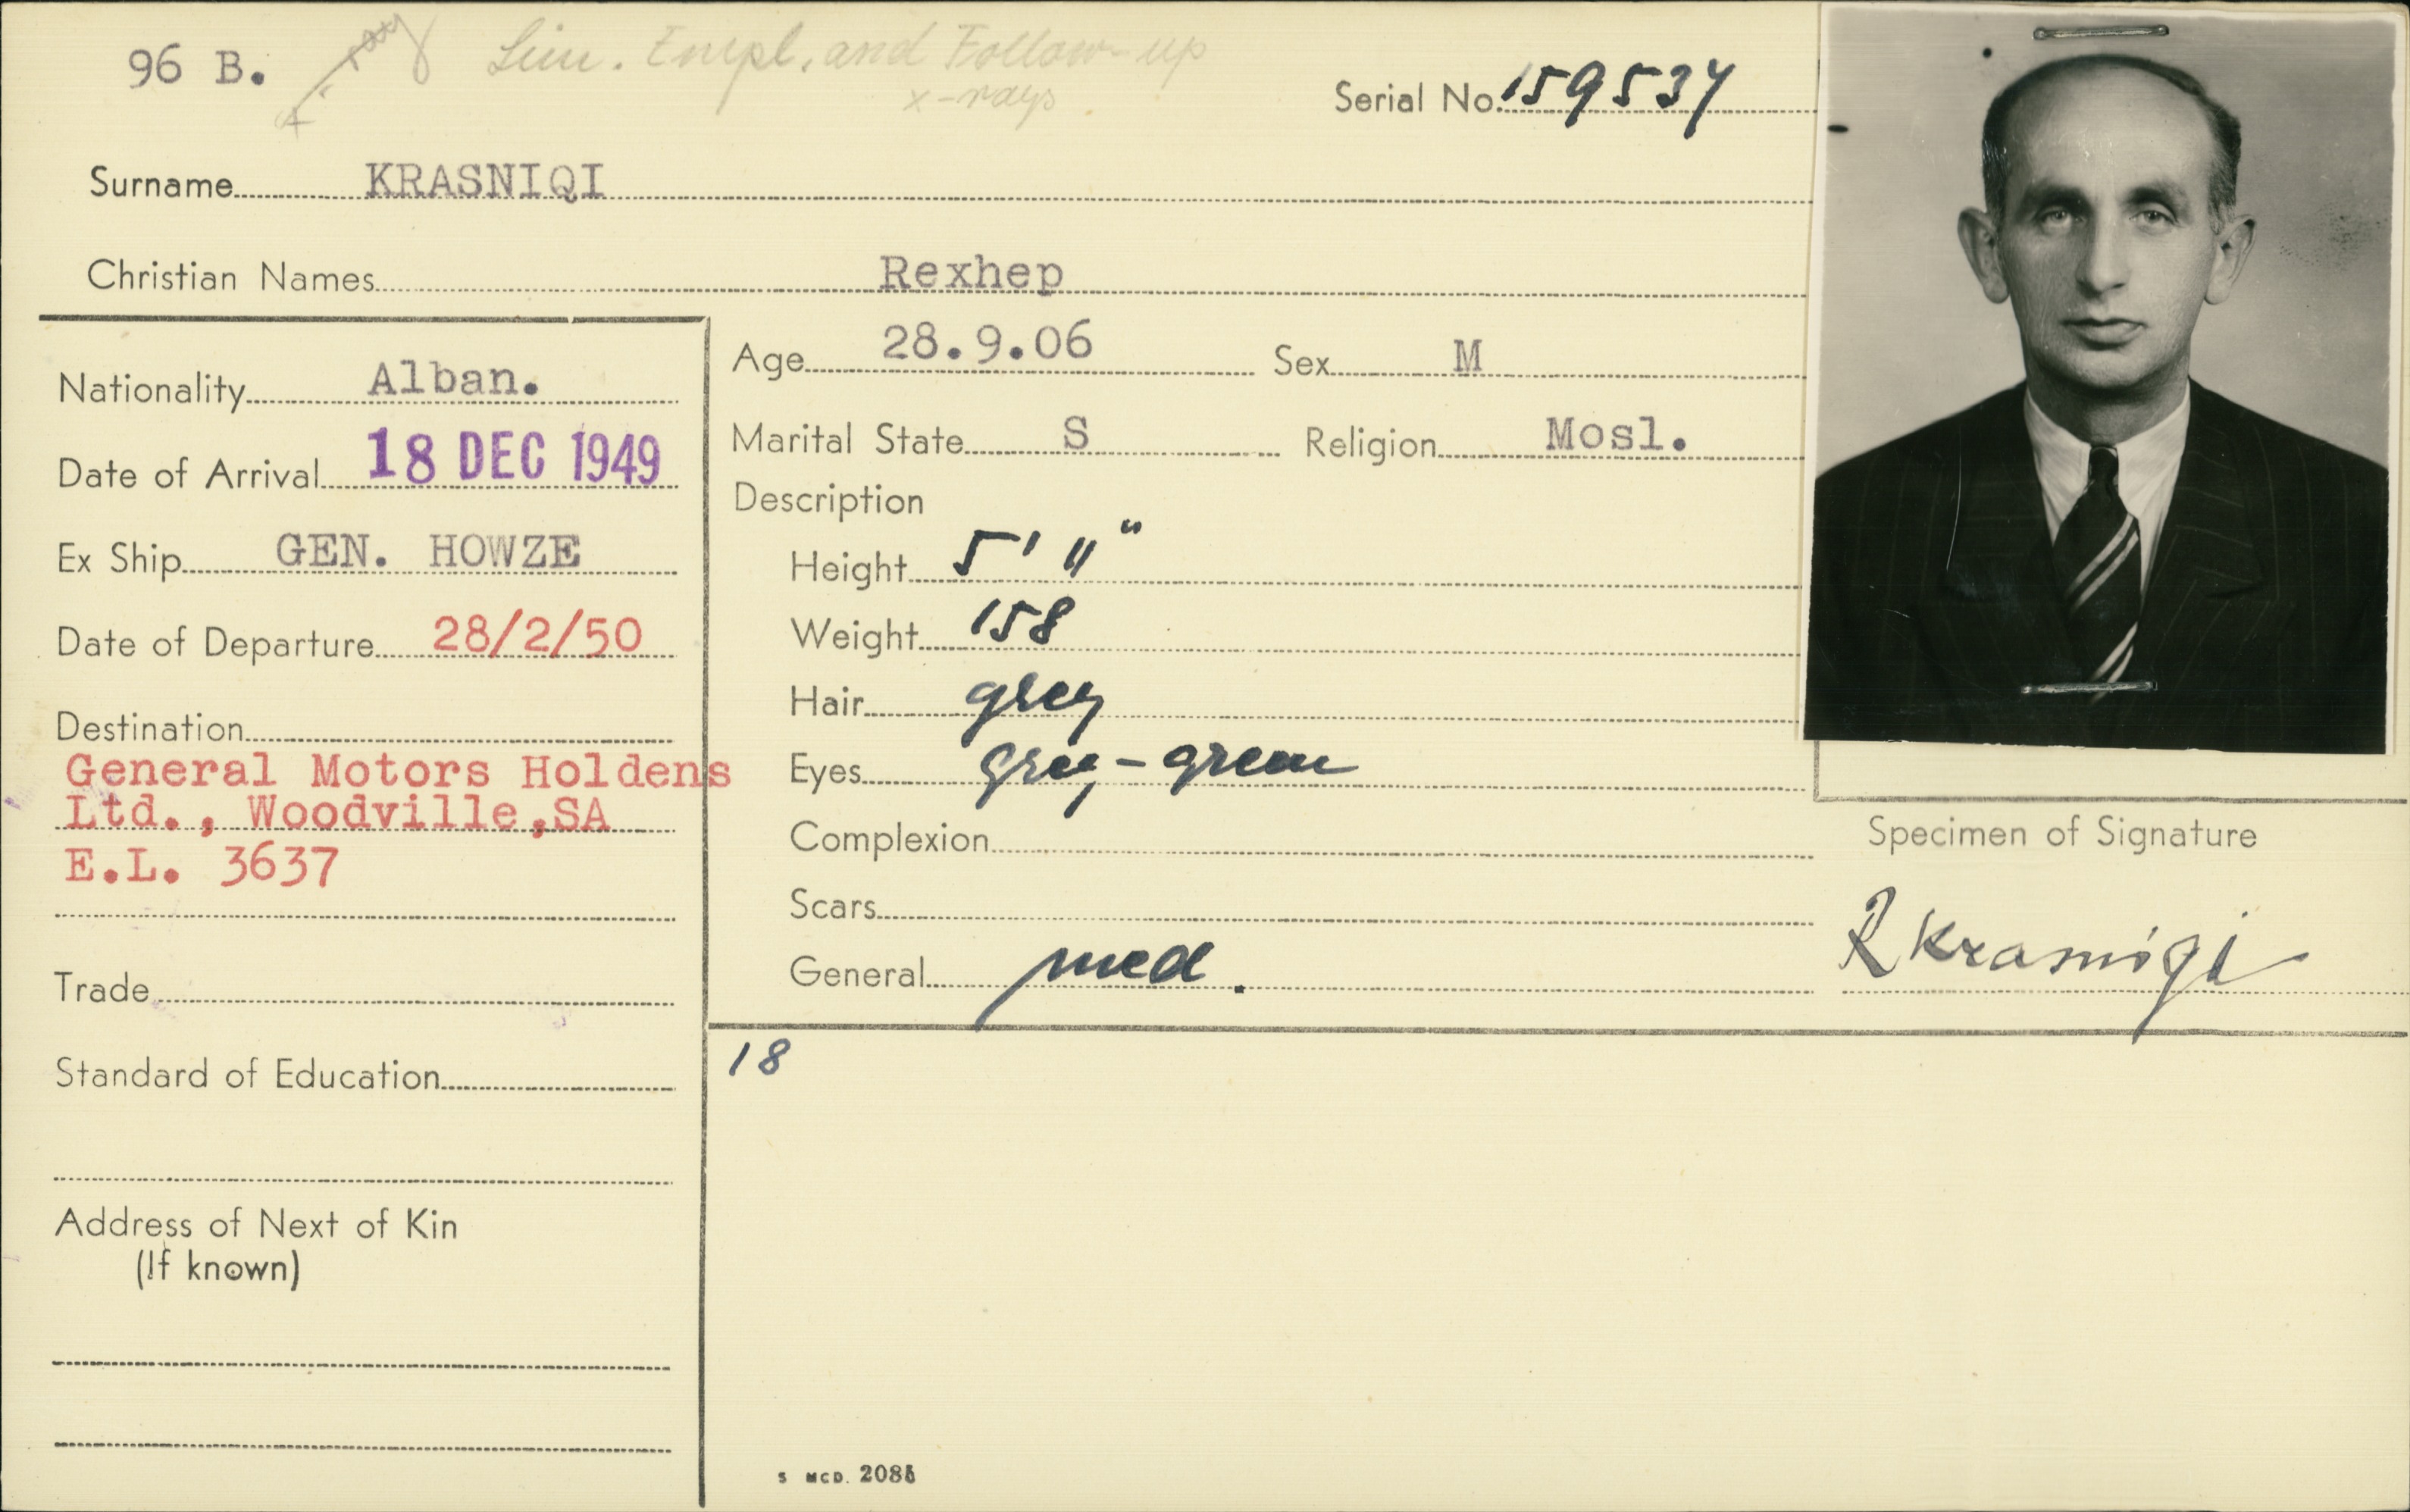 96 B.
Lim. Empl. and Follow-up
x-rays
Serial No. 159537
Surname KRASNIQI
Christian Names Rexhep
Nationality Alban.
Date of Arrival 18 DEC 1949
Ex Ship GEN. HOWZE
Date of Departure 28/2/50
Destination
General Motors Holdens
Ltd., Woodville,SA
E.L. 3637
Trade
Standard of Education
Address of Next of Kin
(If known)
Age 28.9.06 Sex M
Marital State S Religion Mosl.
Description
Height 5' 11"
Weight 158
Hair grey
Eyes grey-green
Complexion
Scars
General med.
Specimen of Signature
R Krasniqi
18
S MCD. 2086